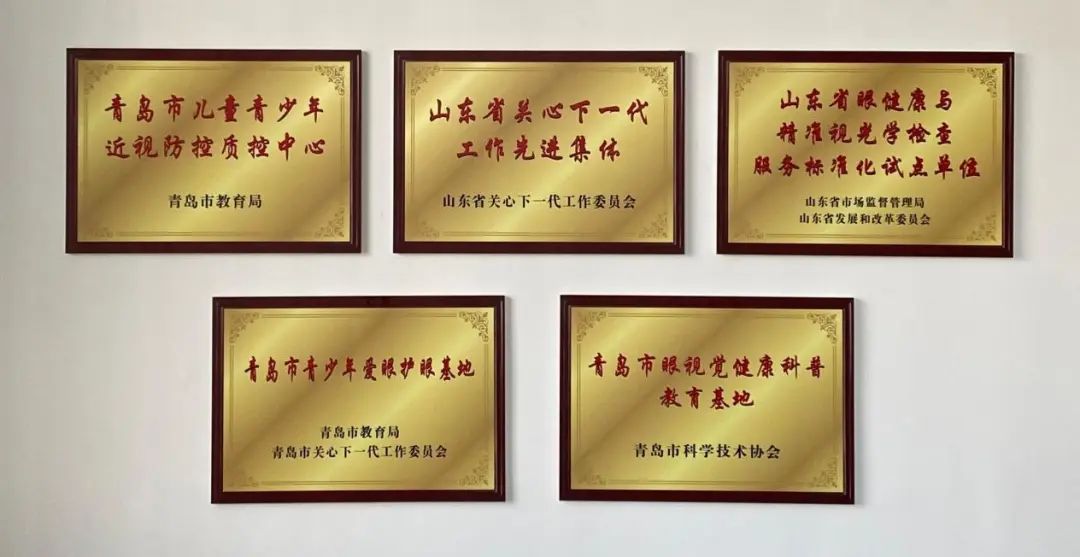 青岛市儿童青少年
近视防控质控中心
青岛市教育局
山东省关心下一代
工作先进集体
山东省关心下一代工作委员会
山东省眼健康与
精准视光学检查
服务标准化试点单位
山东省市场监督管理局
山东省发展和改革委员会
青岛市青少年爱眼护眼基地
青岛市教育局
青岛市关心下一代工作委员会
青岛市眼视觉健康科普
教育基地
青岛市科学技术协会